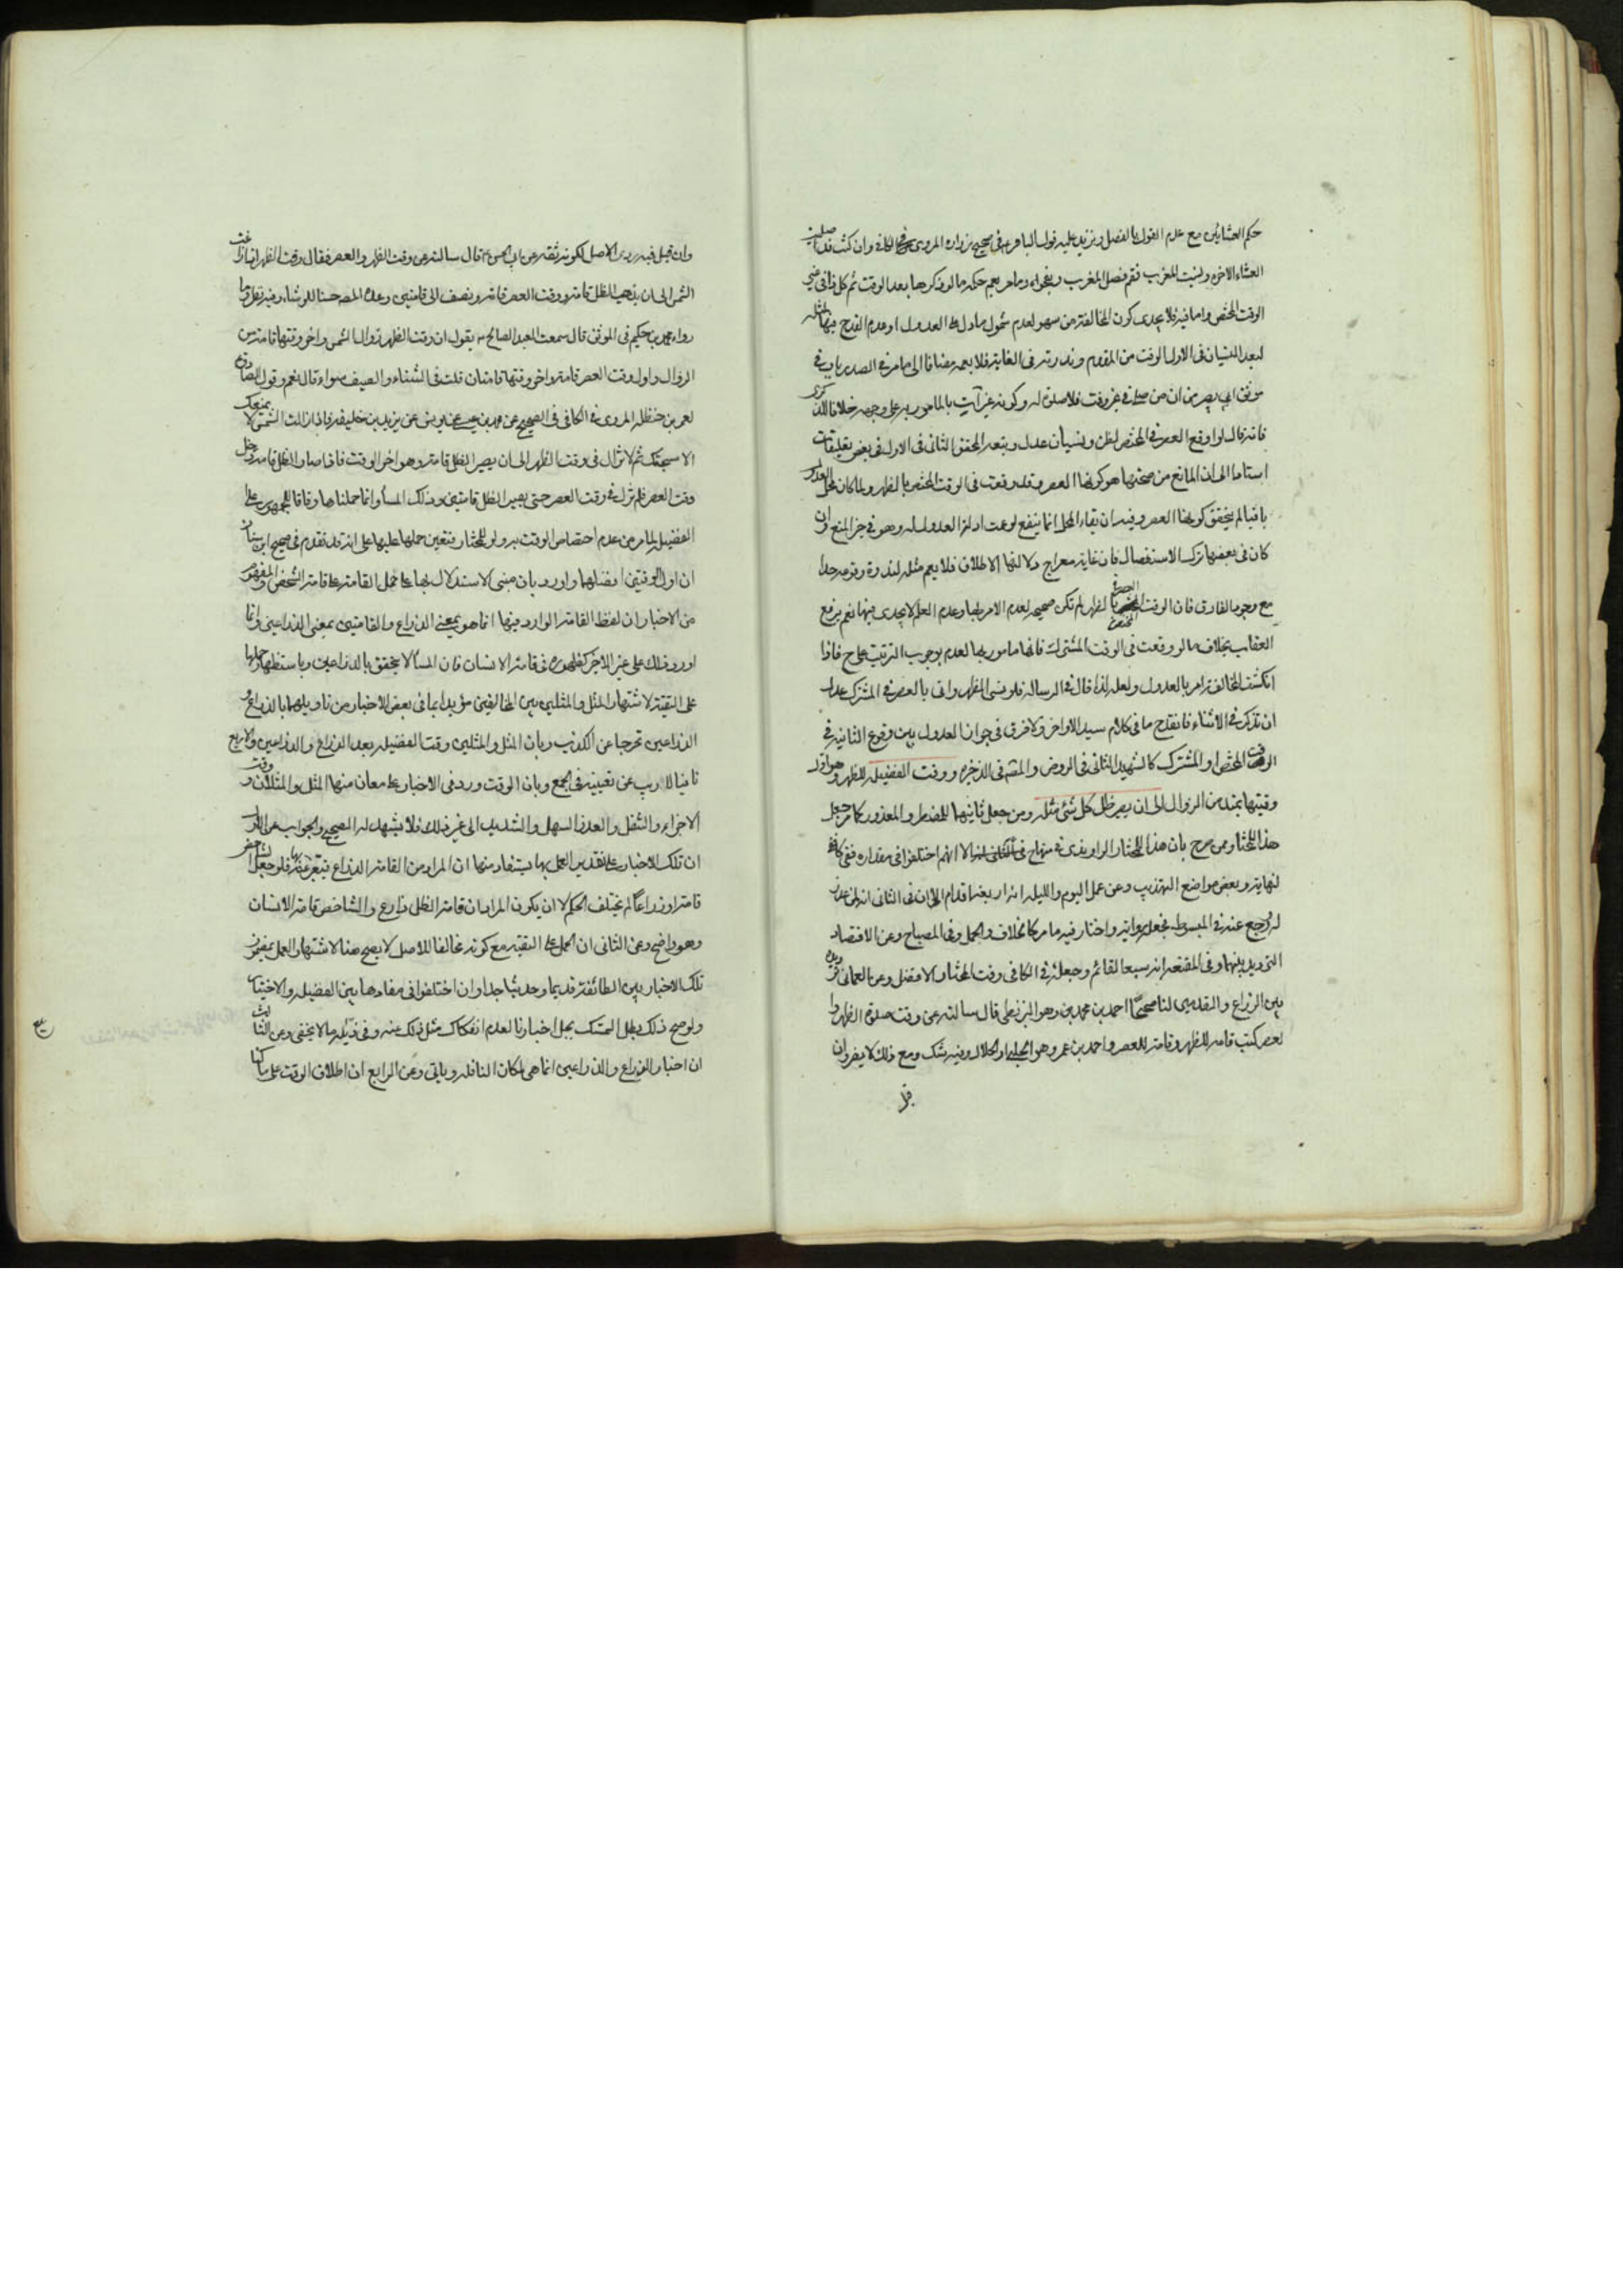 حكم العشائين مع عدم القول بالفصل ويزيد عليه قول الباقر في صحيح زرارة المروي في الكافي وان كنت قد صليت
العشاء الاخرة ونسيت المغرب فقم فصل المغرب وبفحواه وما مر يعم حكمه ما لو ذكرها بعد الوقت ثم كل ذا في غير
الوقت المختص واما فيه فلا يجدى كون المخالفة من سهو لعدم شمول ما دل على العدول او عدم القدح فيها لمثله
لبعد النسيان في الاول الوقت من المقدم وندرته في الغاية فلا يعمه مضافا الى ما مر في الصدر ياتى في
موثق ابي بصير من ان من صلى في غير وقت فلا صلوة له وكونه غير آت بالمامور به على وجهه خلافا للذكرى
فانه قال لو اوقع العصر في المختص لظن او نسيان عدل وتبعه المحقق الثاني في الاول في بعض تعليقاته
استنادا الى ان المانع من صحتها هو كونها العصر وقد وقعت في الوقت المختص بالظهر ولما كان محل العدول
باقيا لم يتحقق كونها العصر وفيه ان بقاء المحل انما ينفع لو عمت ادلة العدول له وهو في حيز المنع وان
كان في بعضها ترك الاستفصال فان غاية معراج دلالتها الاطلاق فلا يعم مثله لندرة وقوعه جدا
مع وجود الفارق فان الوقت المختص بالظهر لم تكن صحيحة لعدم الامر بها وعدم العلم لا يجدى فيها نعم يرفع
العقاب بخلاف ما لو وقعت في الوقت المشترك فانها مامور بها لعدم وجوب الترتيب على ح فاذا
انكشف المخالفة امر بالعدول ولعله لذا قال في الرسالة فلو نسي الظهر واتى بالعصر في المشترك عدل
ان تذكر في الاثناء فانقدح ما في كلام سيد الاواخر ولا فرق في جواز العدول بين وقوع الثانية في
الوقت المختص او المشترك كالشهيد الثاني في الروض والمتم في الذخيرة ووقت الفضيلة للظهر وهو اول
وقتيها يمتد من الزوال الى ان يصير ظل كل شئ مثله ومن جعل ثانيها للمضطر والمعذور كما مر جعل
هذا للمختار وممن صرح بان هذا للمختار الراوندى في منهاج الا انهم اختلفوا في مقداره ففي
لنهاية وبعض مواضع التهذيب وعن عمل اليوم والليلة انه اربعة اقدام الا ان في الثاني انه لمن
له ورجع عنه في المبسوط فجعل رواية واختار فيه ما مر كالخلاف والجمل وفى المصباح وعن الاقتصاد
الترديد بينهما وفى المقنعة انه سبعا القائم وجعله في الكافى وقت المختار الافضل وعن العماني
بين الذراع والقدمين لنا صحيحا احمد بن محمد بن وهو البزنطى قال سالته عن وقت صلوة الظهر وا
لعصر كتب قامة للظهر وقامة للعصر واحمد بن عمر وهو الحلبي او الحلال وفيه شك ومع ذلك لا يضر وان
وان قيل فيه ردى الاصل لكونه ثقة عن ابي الحسن ع قال سالته عن وقت الظهر والعصر فقال وقت الظهر اذا زاغت
الشمس الى ان يذهب الظل قامة ووقت العصر قامة ونصف الى قامتين وعده حسنا للوشاء وفيه نظر وما
رواه محمد بن حكيم في الموثق قال سمعت العبد الصالح يقول ان وقت الظهر زوال الشمس واخر وقتها قامة من
الزوال واول وقت العصر قامة واخر وقتها قامتان قلت في الشتاء والصيف سواء قال نعم وقول الصادق
لعمر بن حنظلة المروى في الكافى في الصحيح عن محمد بن عيسى عن يونس عن يزيد بن خليفة فاذا زالت الشمس لا يمنعك
الا سبحتك ثم لا تزال في وقت الظهر الى ان يصير الظل قامة وهو اخر الوقت فاذا صار الظل قامة دخل
وقت العصر فلم تزل في وقت العصر حتى يصير الظل قامتين وذلك المساء وانما حملناها وفاقا للجمهور على
الفضيلة لما مر من عدم اختصاص الوقت به ولو للمختار فتعين حملها عليها على انه قد تقدم في صحيح ابن سنان
ان اول الوقتين افضلهما واورد بان مبنى الاستدلال بها على حمل القامة على قامة الشخص والمفهوم
من الاخبار ان لفظ القامة الوارد فيها انما هو بمعنى الذراع والقامتين بمعنى الذراعين وانما
اورد ذلك على غير الاخير لظهوره في قامة الانسان فان المساء لا يتحقق بالذراعين وباستظهار حملها
على التقية لاشتهار المثل والمثلين بين المخالفين مؤيدا بما في بعض الاخبار من تاويلهما بالذراع و
الذراعين تحرجا عن الكذب وبان المثل والمثلين وقت الفضيلة بعد الذراع والذراعين والاربع
نافيا للريب عن تعيينه في الجمع وبان الوقت ورد في الاخبار على معان منها المثل والمثلان ووقت
الاجزاء والثقل والعذر السهل والشديد الى غير ذلك فلا يشهد له الصحيح والجواب عن الاول
ان تلك الاخبار على تقدير العمل بها يستفاد منها ان المراد من القامة الذراع فلو جعل الشاخص
قامة او ذراعا لم يختلف الحكم لا ان يكون المراد ان قامة الظل ذراع والشاخص قامة الانسان
وهو واضح وعن الثاني ان الحمل على التقية مع كونه مخالفا للاصل لا يصح هنا لاشتهار العمل بمضمون
تلك الاخبار بين الطائفة قديما وحديثا جدا وان اختلفوا في مفادها بين الفضيلة والاختيار
ولو صح ذلك بطل التمسك بجل اخبارنا لعدم انفكاك مثل ذلك عنه وفى ذيله ما لا يخفى وعن الثالث
ان اخبار الذراع والذراعين انما هي لمكان النافلة وياتى وعن الرابع ان اطلاق الوقت على